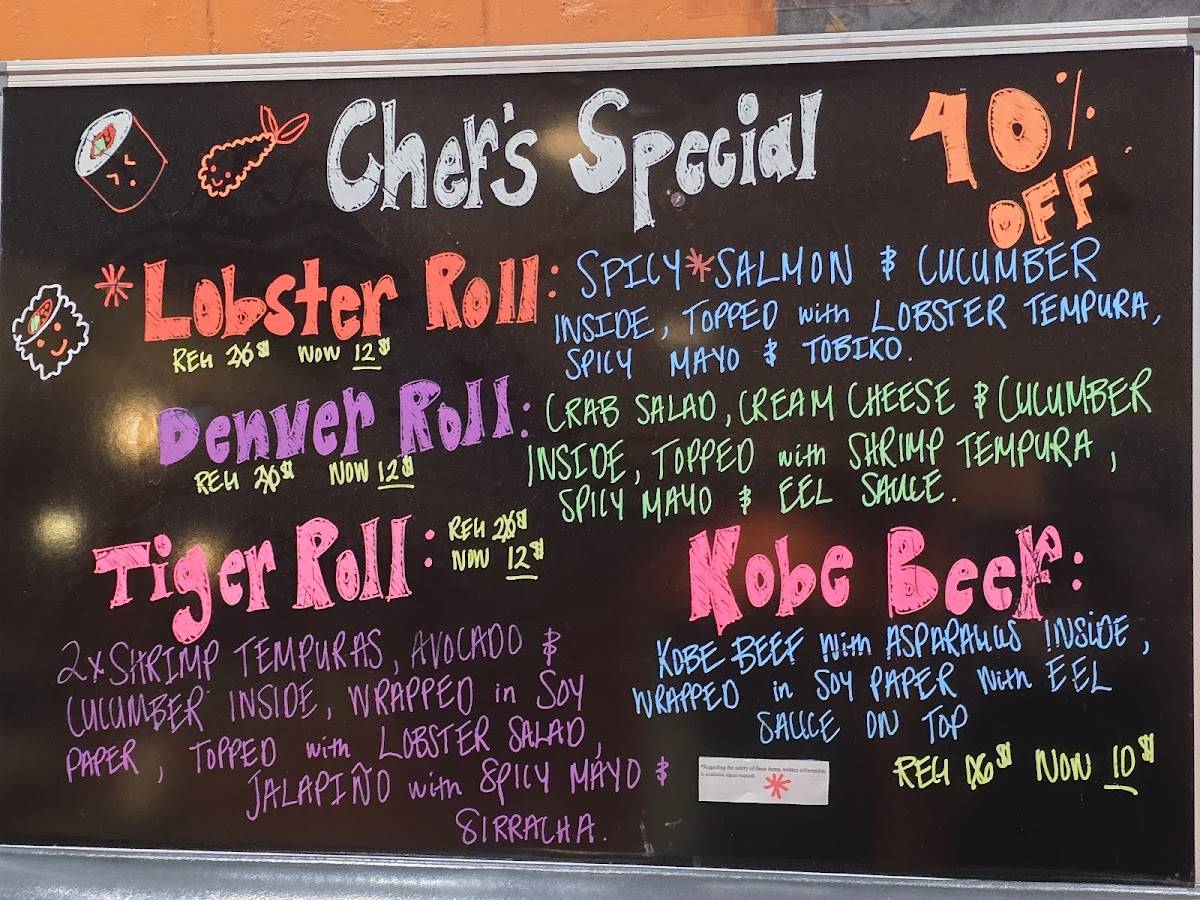 Chef's Special
40% OFF
*Lobster Roll: SPICY*SALMON & CUCUMBER
INSIDE, TOPPED with LOBSTER TEMPURA,
SPICY MAYO & TOBIKO.
REG NOW 12 95
Denver Roll: CRAB SALAD, CREAM CHEESE & CUCUMBER
INSIDE, TOPPED with SHRIMP TEMPURA,
SPICY MAYO & EEL SAUCE.
REG NOW 12
Tiger Roll: REG
NOW 12
2x SHRIMP TEMPURAS, AVOCADO &
CUCUMBER INSIDE, WRAPPED in SOY
PAPER, TOPPED with LOBSTER SALAD,
JALAPIÑO with SPICY MAYO &
SIRRACHA.
Kobe Beef:
KOBE BEEF with ASPARAGUS INSIDE,
WRAPPED in SOY PAPER with EEL
SAUCE ON TOP
REG NOW 10
*Regarding the safety of these items, written information
is available upon request.
*